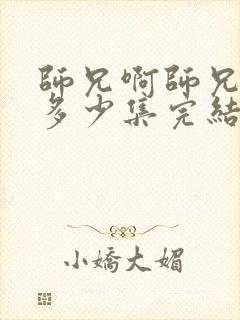 師兄啊師兄
多少集完結
小嬌大媚